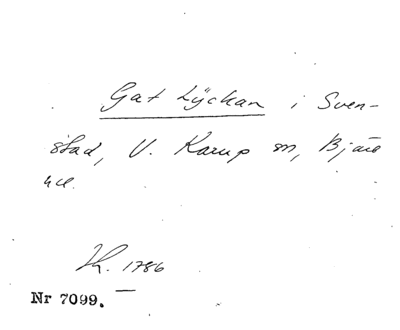 Gat Lÿckan i Sven-
stad, V. Karup sn, Bjäre
hd.
Lh. 1786
Nr 7099.